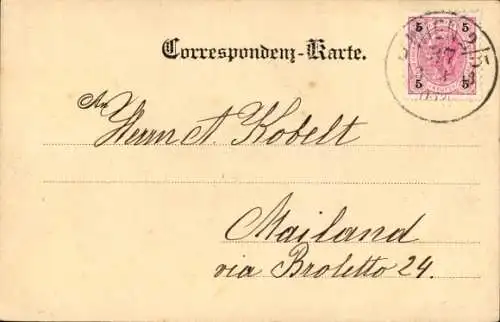 Correspondenz-Karte.
5 5
5 5
An
Herrn A. Kobelt
Mailand
via Broletto 24.